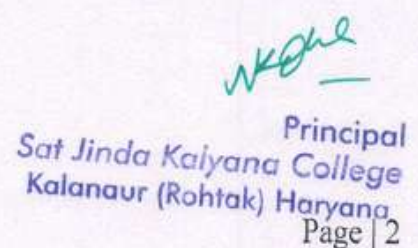 Principal
Sat Jinda Kalyana College
Kalanaur (Rohtak) Haryana
Page | 2